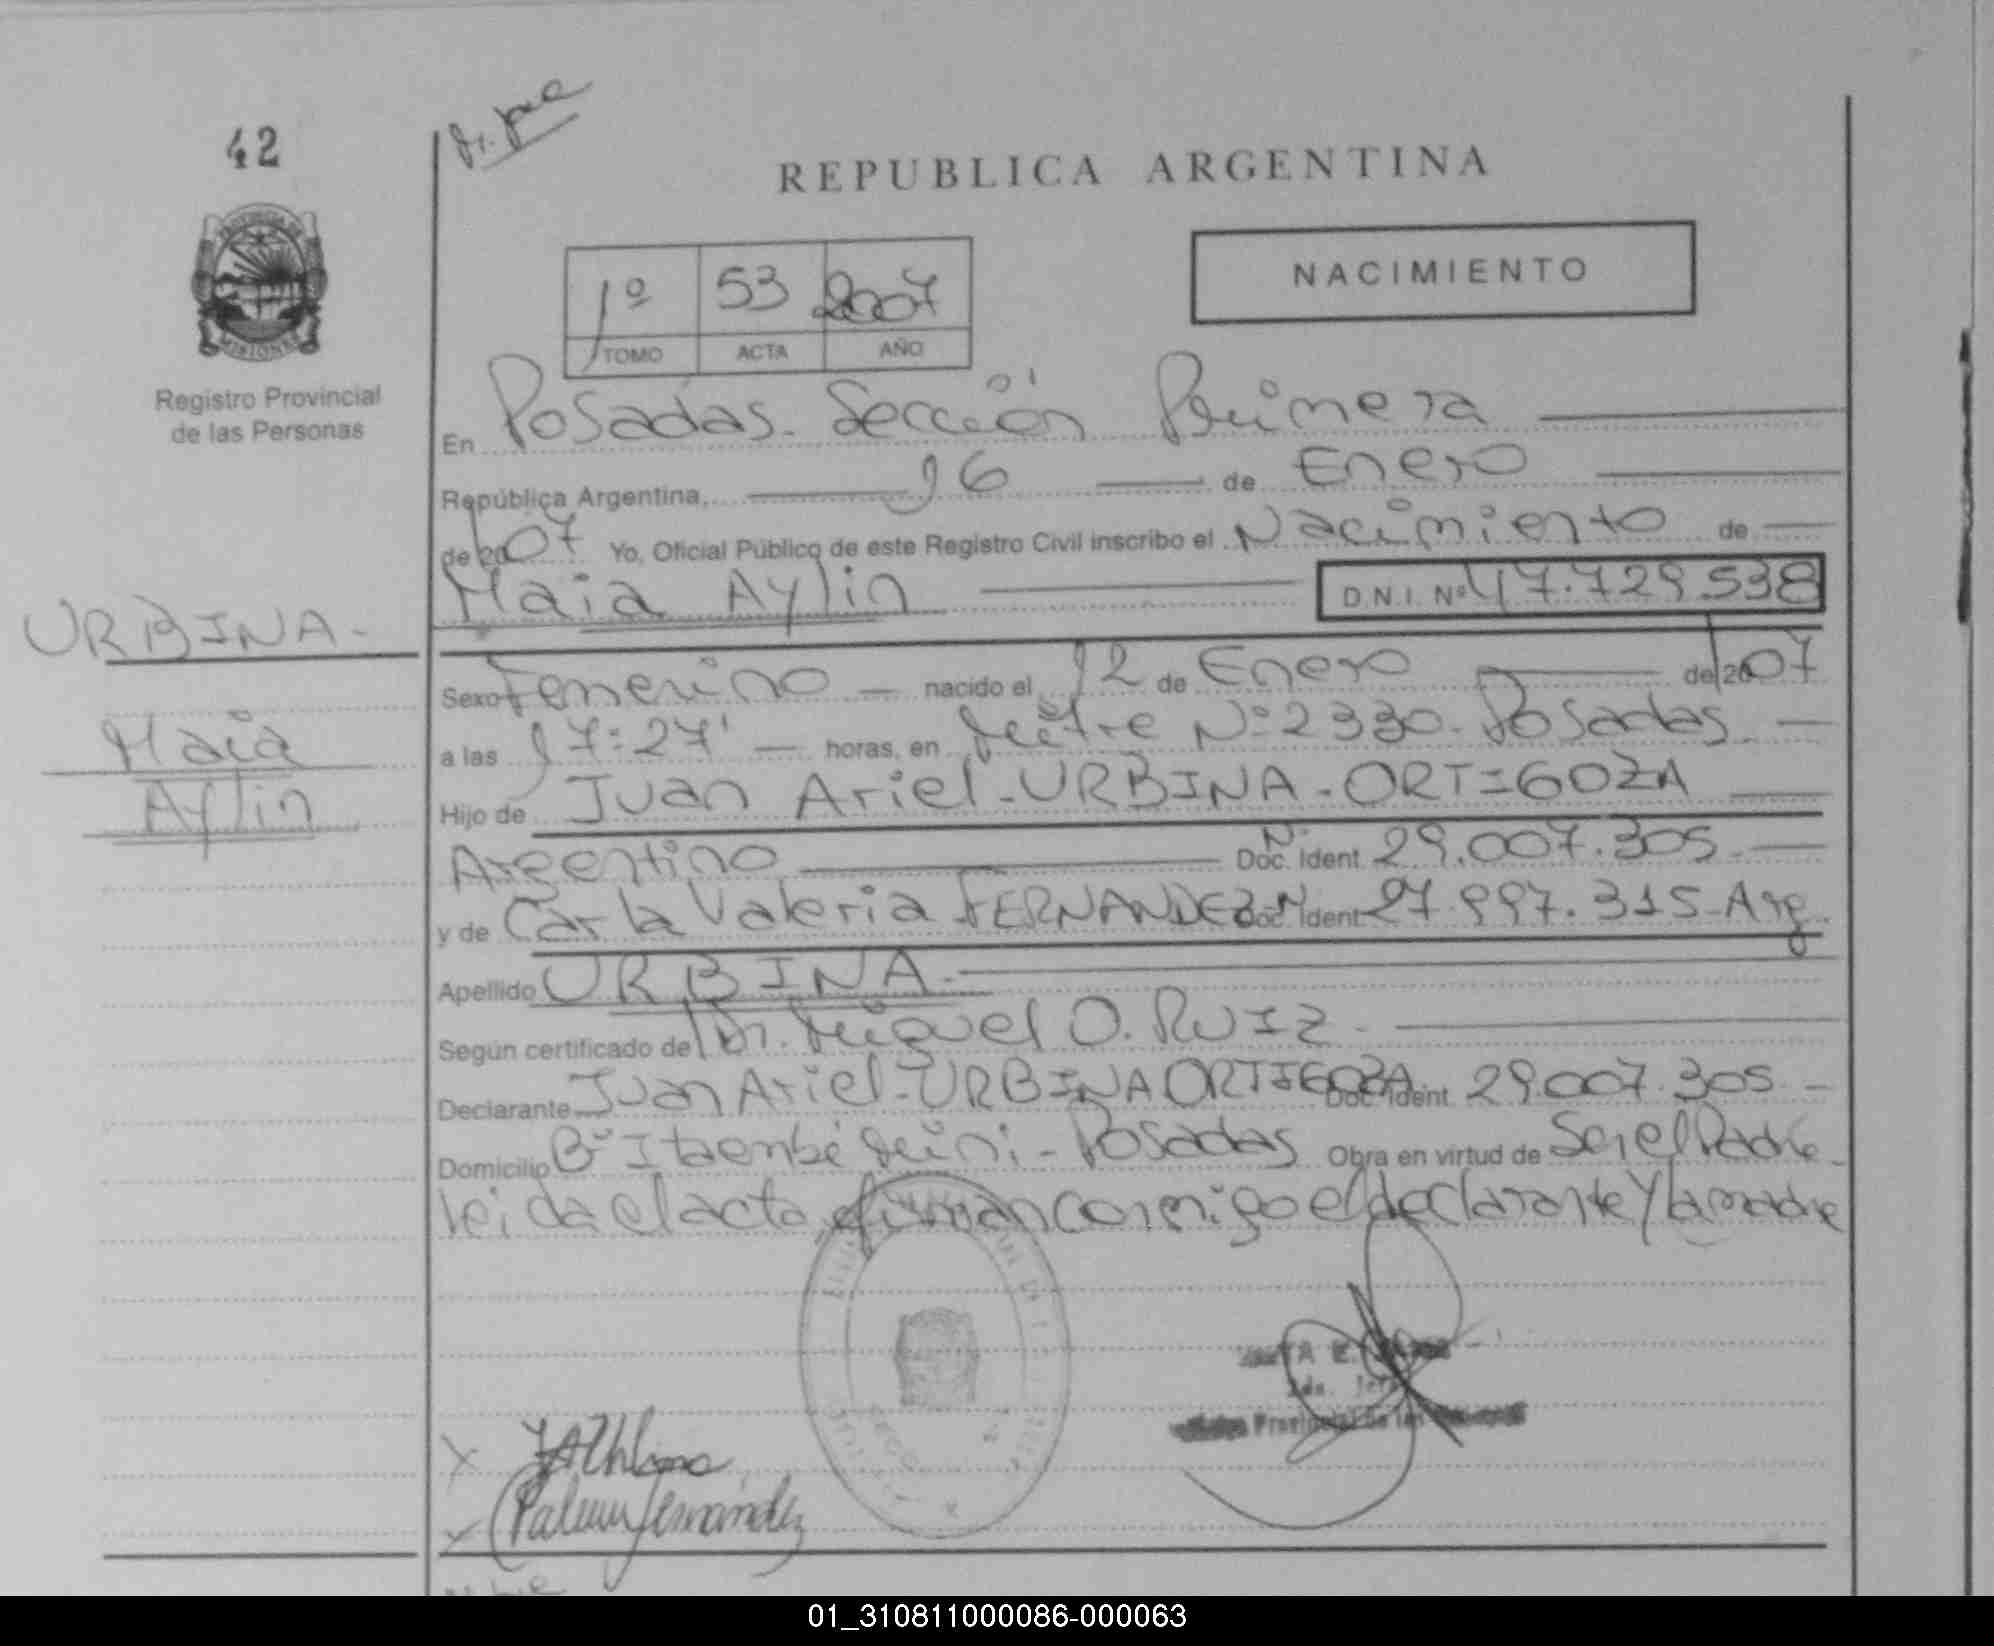 42
REPUBLICA ARGENTINA
NACIMIENTO
1º 53 2007
TOMO ACTA AÑO
MISIONES
Registro Provincial
de las Personas
En Posadas. Sección Primera
República Argentina, 16 de Enero
de 2007 Yo, Oficial Público de este Registro Civil inscribo el Nacimiento de
Maia Aylin D.N.I. Nº 47.729.538
URBINA.
Maia
Aylin
Sexo Femenino nacido el 12 de Enero de 2007
a las 17:27' horas, en Mitre Nº 2330. Posadas.
Hijo de Juan Ariel-URBINA-ORTIGOZA
Argentino Doc. Ident. Nº 29.007.305.
y de Carla Valeria FERNANDEZ Doc. Ident. Nº 27.997.315-Arg.
Apellido URBINA.
Según certificado del Dr. Miguel O. RUIZ.
Declarante Juan Ariel-URBINA ORTIGOZA Doc. Ident. 29.007.305.
Domicilio Bº Itaembé Miní - Posadas Obra en virtud de Ser el Padre
leida el acta, firman conmigo el declarante y la madre
Provincial de las
Fernández
01_310811000086-000063